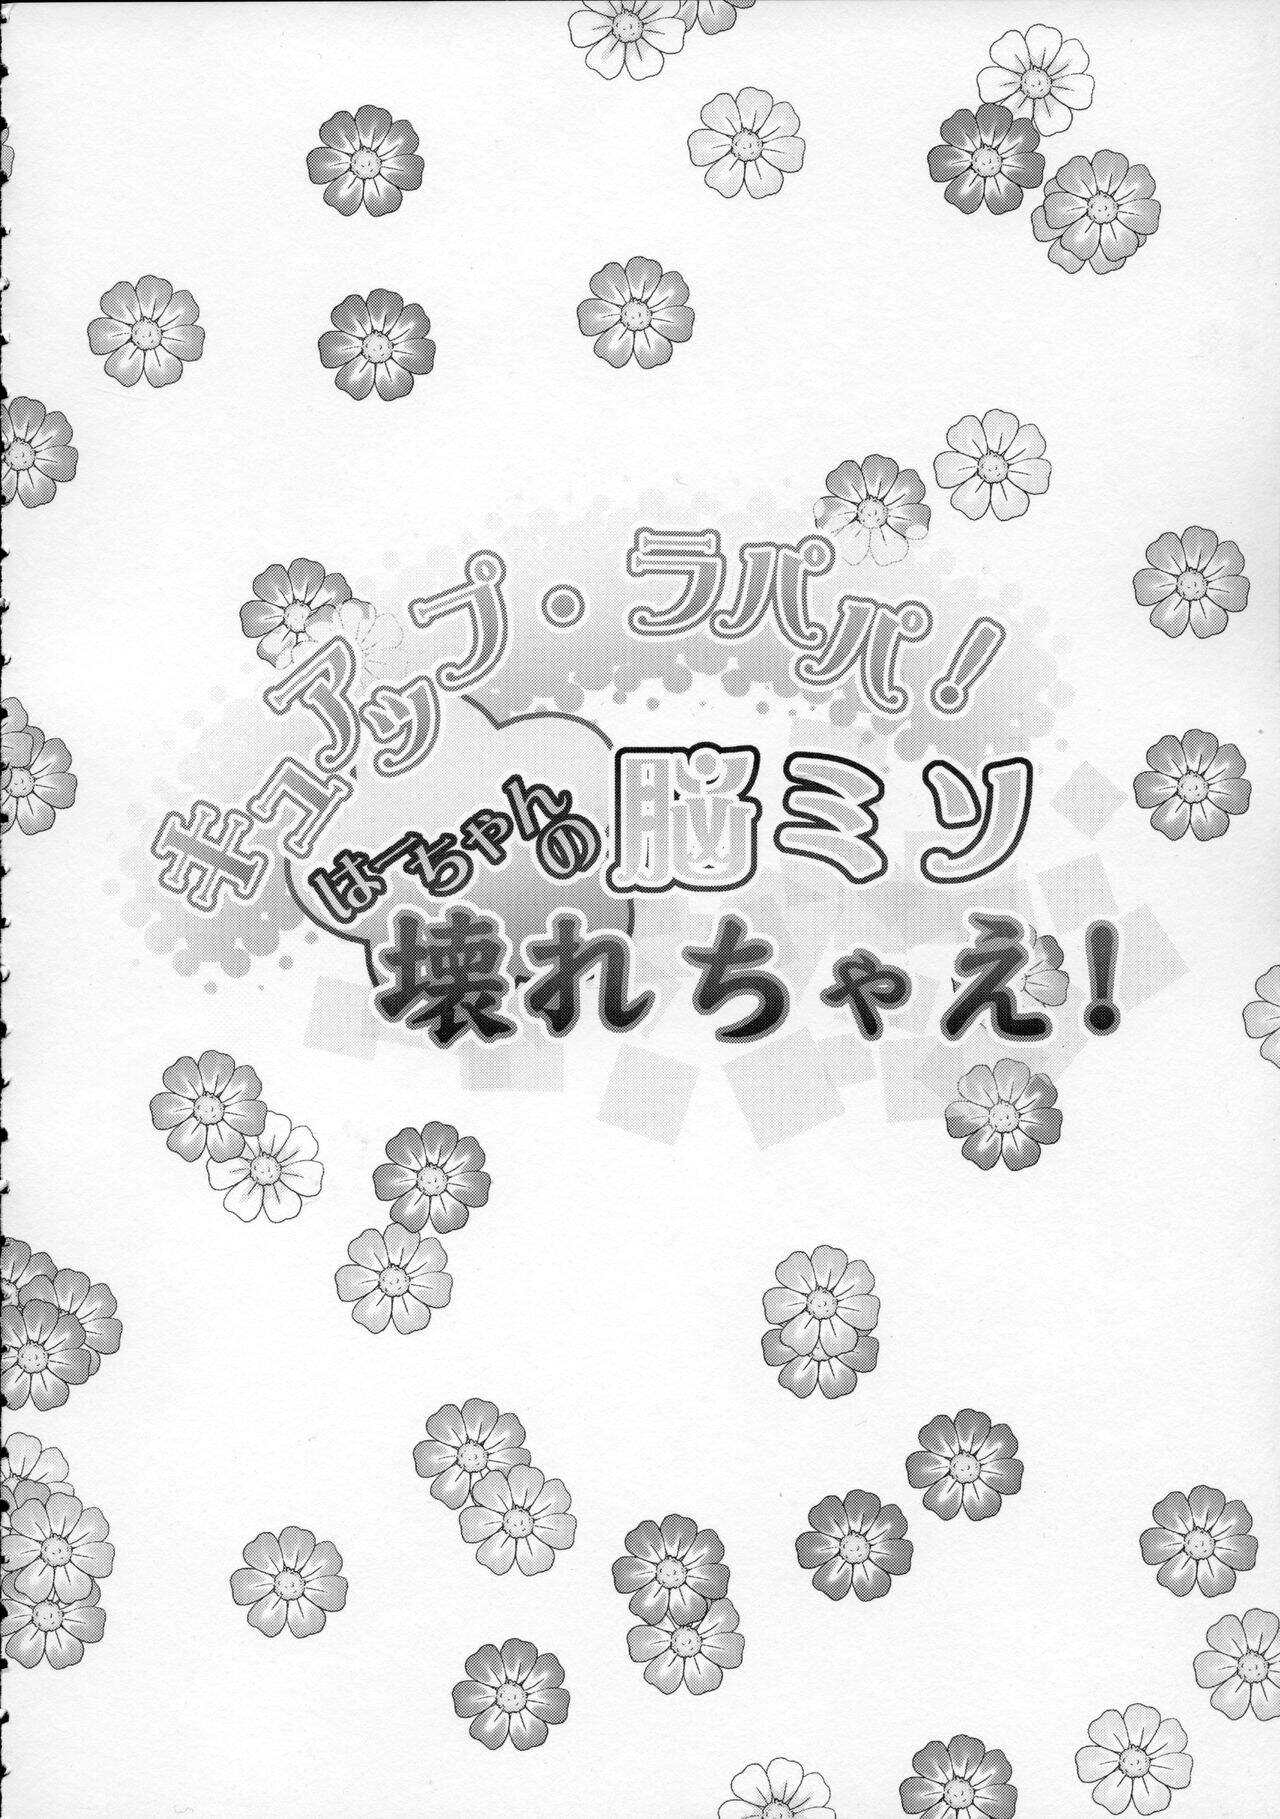 キュアップ・ラパパ！
はーちゃんの脳ミソ
壊れちゃえ！